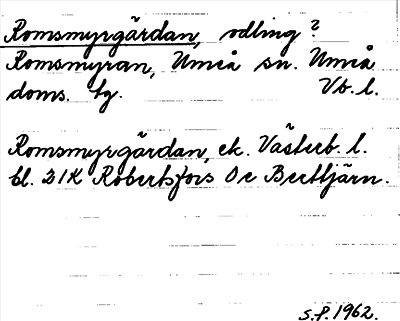 Romsmyrgärdan, odling?
Romsmyran, Umeå sn. Umeå
doms. fg. Vb. l.
Romsmyrgärdan, ek. Västerb. l.
bl. 21K Robertsfors 0c Bertjärn.
S.P. 1962.